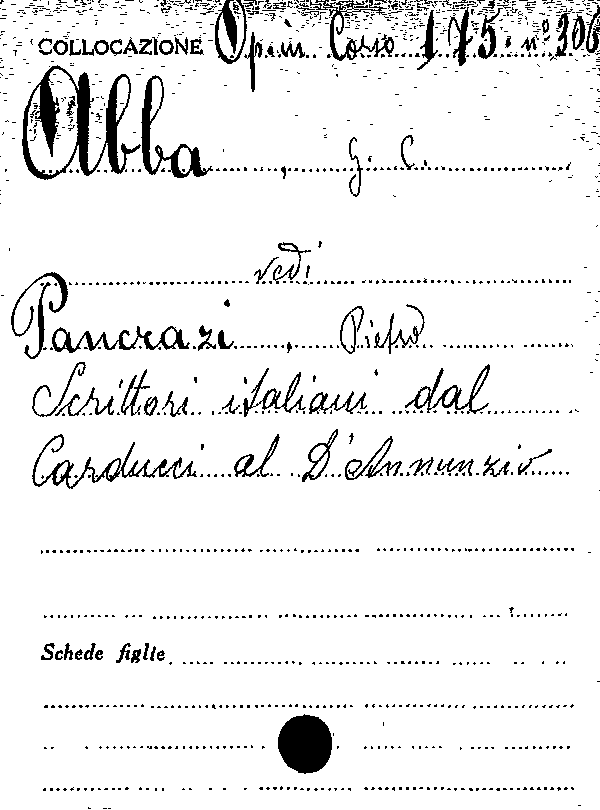 COLLOCAZIONE Op. in Corso 175. nº 306
Abba, G. C.
vedi
Pancrazi, Pietro
Scrittori italiani dal
Carducci al D'Annunzio
Schede figlie